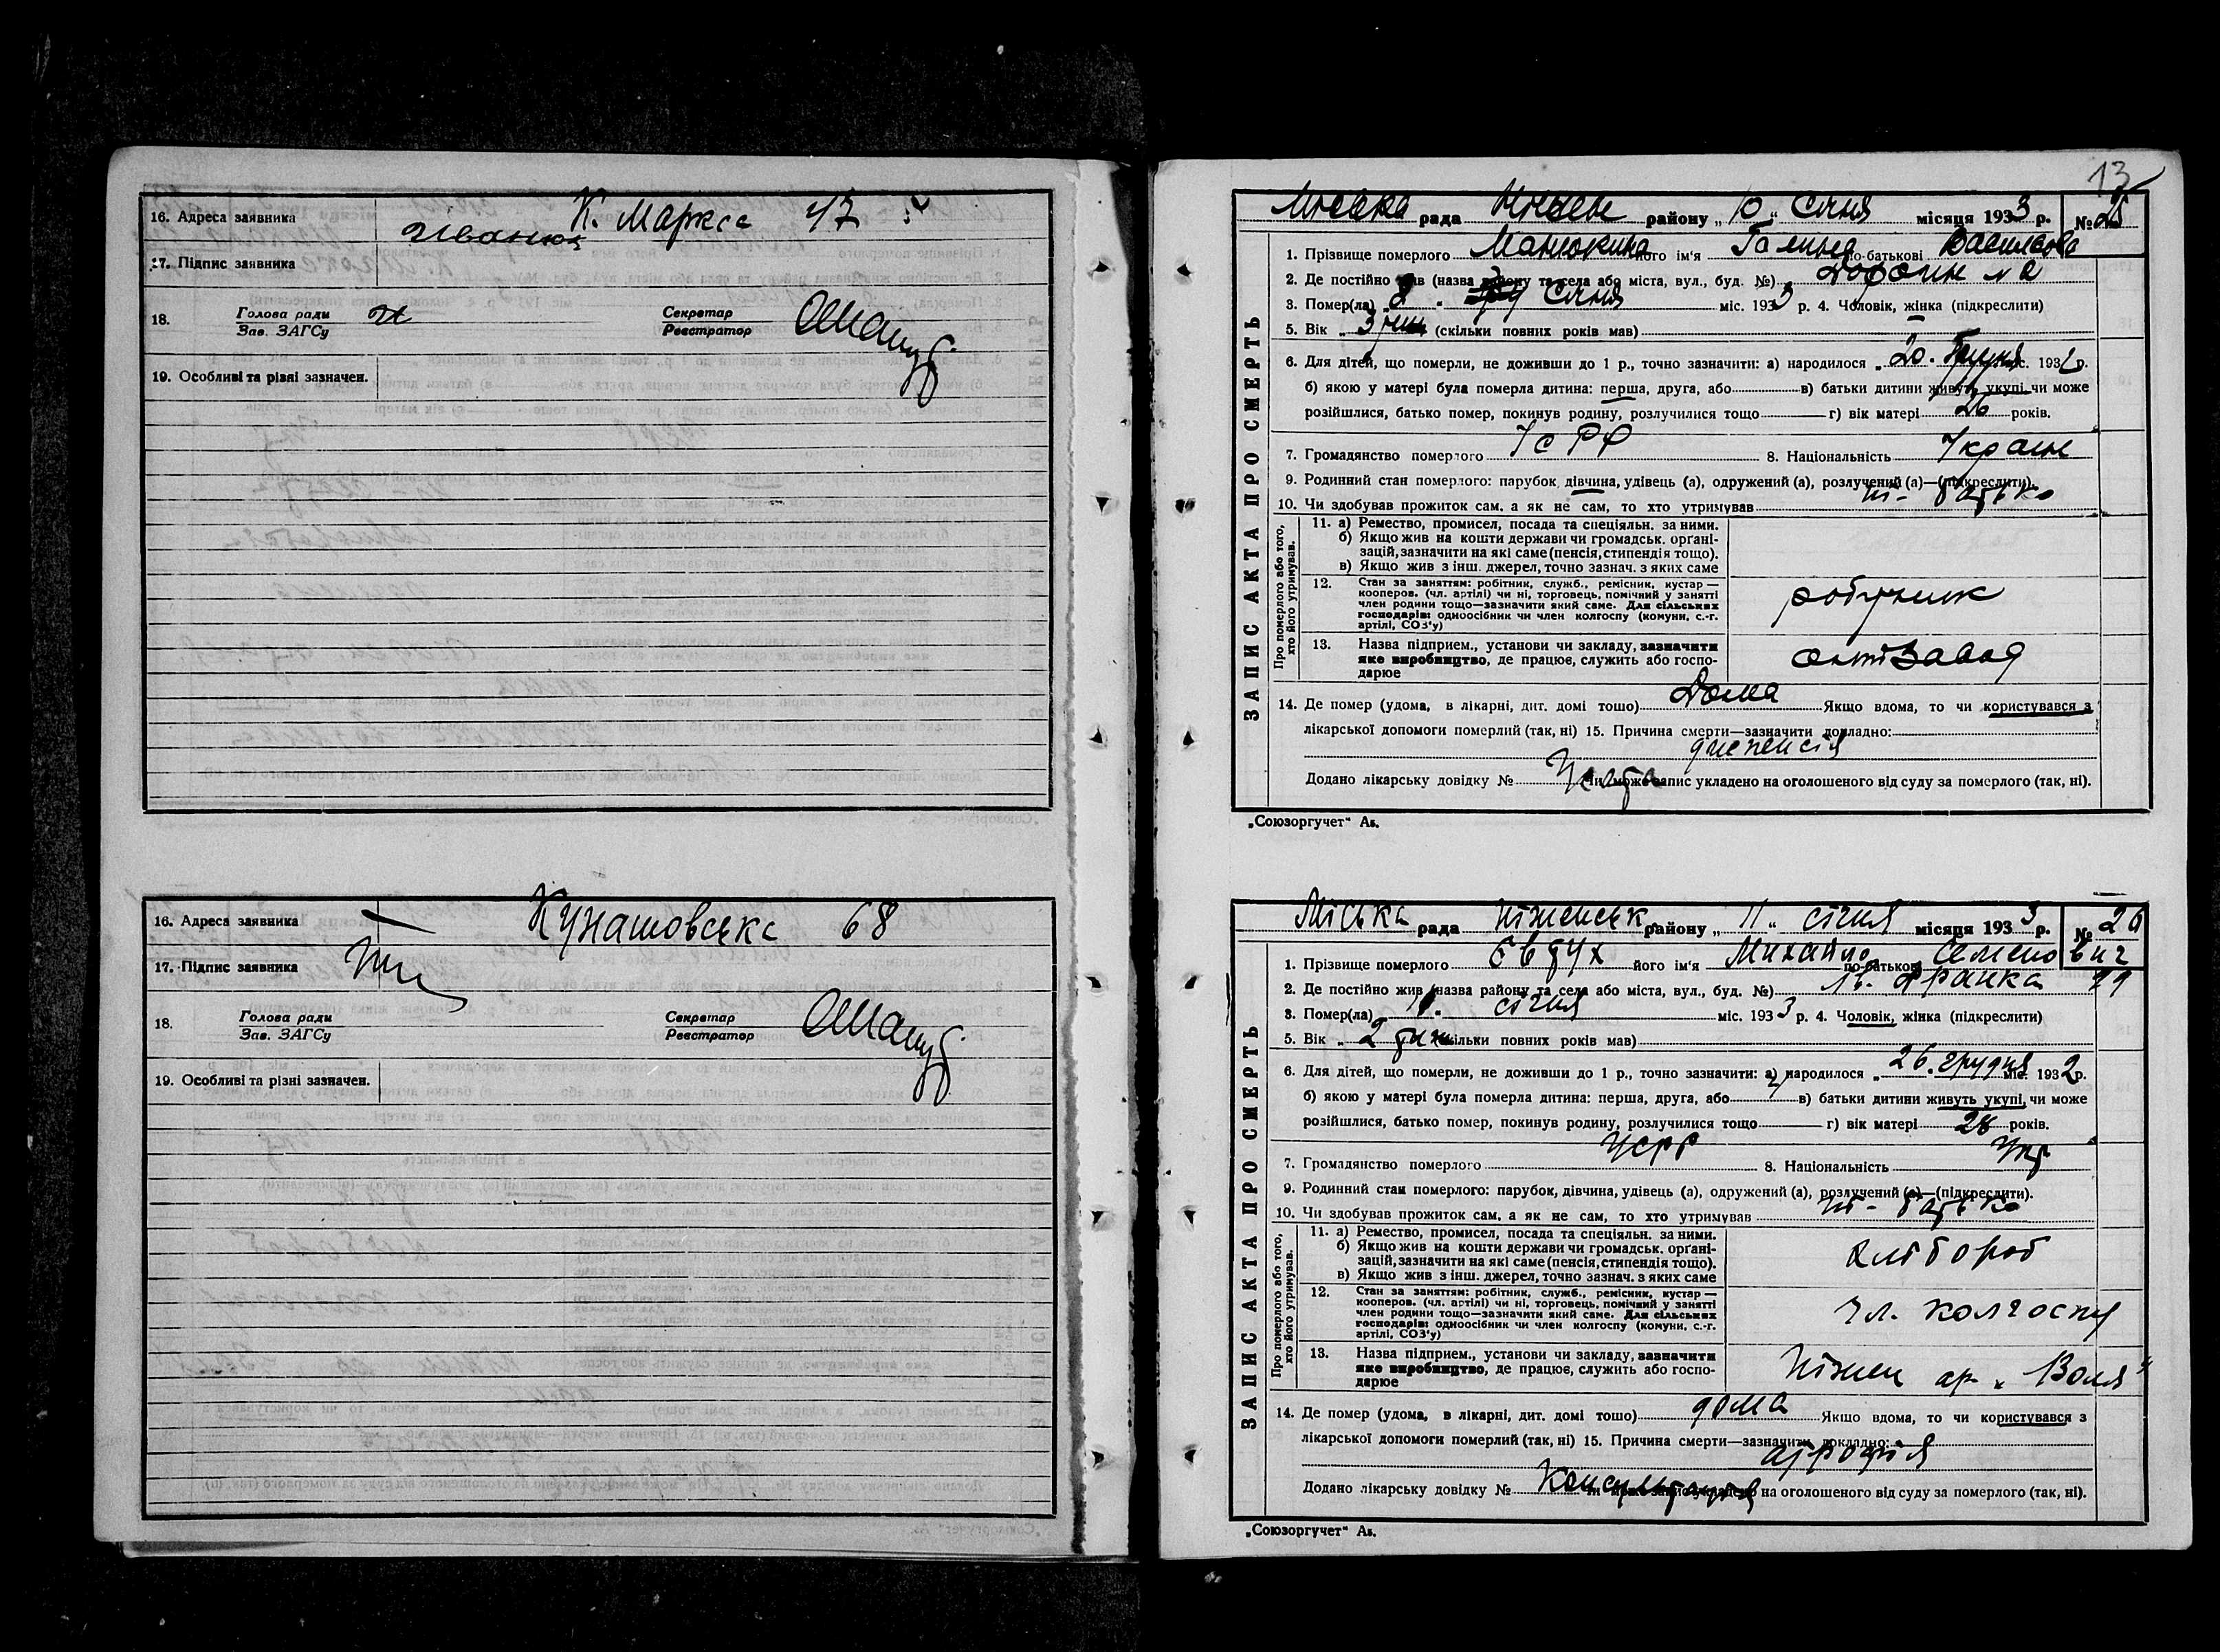 16. Адреса заявника К. Маркса 47
17. Підпис заявника
18. Голова ради
Зав. ЗАГСу
Секретар
Реєстратор
19. Особливі та різні зазначен.
16. Адреса заявника Кунашовська 68
17. Підпис заявника
18. Голова ради
Зав. ЗАГСу
Секретар
Реєстратор
19. Особливі та різні зазначен.
13
ЗАПИС АКТА ПРО СМЕРТЬ
Міська рада Ніжен району „ 10 “ Січня місяця 1933 р. № 25
1. Прізвище померлого Манюкина його ім'я Галина по-батькові
2. Де постійно жив (назва району та села або міста, вул., буд. №)
3. Помер(ла) 8 „ Січня міс. 1933 р. 4. Чоловік, жінка (підкреслити)
5. Вік „ 3 (скільки повних років мав)
6. Для дітей, що померли, не доживши до 1 р., точно зазначити: а) народилося „ 20. Грудня міс. 1932 р.
б) якою у матері була померла дитина: перша, друга, або в) батьки дитини живуть укупі чи може
розійшлися, батько помер, покинув родину, розлучилися тощо г) вік матері 26 років.
7. Громадянство померлого 8. Національність Украин
9. Родинний стан померлого: парубок, дівчина, удівець (а), одружений (а), розлучений (а)—(підкреслити).
10. Чи здобував прожиток сам, а як не сам, то хто утримував ні - батько
Про померлого або того, хто його утримував.
11. а) Ремество, промисел, посада та спеціяльн. за ними.
б) Якщо жив на кошти держави чи громадськ. орґані-
зацій, зазначити на які саме (пенсія, стипендія тощо).
в) Якщо жив з інш. джерел, точно зазнач. з яких саме
12. Стан за заняттям: робітник, служб., ремісник, кустар —
кооперов. (чл. артілі) чи ні, торговець, помічний у занятті
член родини тощо—зазначити який саме. Для сільських
господарів: одноосібник чи член колгоспу (комуни, с.-г.
артілі, СОЗ'у)
робутник
13. Назва підприєм., установи чи закладу, зазначити
яке виробництво, де працює, служить або госпо-
дарює
14. Де помер (удома, в лікарні, дит. домі тошо) Дома Якщо вдома, то чи користувався з
лікарської допомоги померлий (так, ні) 15. Причина смерти—зазначити докладно:
диспепсія
Додано лікарську довідку № Чи може запис укладено на оголошеного від суду за померлого (так, ні).
„Союзоргучет“ А₅.
ЗАПИС АКТА ПРО СМЕРТЬ
Міська рада Ніженськ району „ 11 “ січня місяця 1933 р. № 26
1. Прізвище померлого Євдух його ім'я Михайло по-батькові Семенович
2. Де постійно жив (назва району та села або міста, вул., буд. №) Ів. Франка
3. Помер(ла) січня міс. 1933 р. 4. Чоловік, жінка (підкреслити)
5. Вік „ 2 тиж (скільки повних років мав)
6. Для дітей, що померли, не доживши до 1 р., точно зазначити: а) народилося „ 26. грудня міс. 1932 р.
б) якою у матері була померла дитина: перша, друга, або в) батьки дитини живуть укупі, чи може
розійшлися, батько помер, покинув родину, розлучилися тощо г) вік матері 28 років.
7. Громадянство померлого УСРР 8. Національність Укр
9. Родинний стан померлого: парубок, дівчина, удівець (а), одружений (а), розлучений (а)—(підкреслити).
10. Чи здобував прожиток сам, а як не сам, то хто утримував ні - батько
Про померлого або того, хто його утримував.
11. а) Ремество, промисел, посада та спеціяльн. за ними.
б) Якщо жив на кошти держави чи громадськ. орґані-
зацій, зазначити на які саме (пенсія, стипендія тощо).
в) Якщо жив з інш. джерел, точно зазнач. з яких саме
хлібороб
12. Стан за заняттям: робітник, служб., ремісник, кустар —
кооперов. (чл. артілі) чи ні, торговець, помічний у занятті
член родини тощо—зазначити який саме. Для сільських
господарів: одноосібник чи член колгоспу (комуни, с.-г.
артілі, СОЗ'у)
чл. колгоспу
13. Назва підприєм., установи чи закладу, зазначити
яке виробництво, де працює, служить або госпо-
дарює
Ніжен ар. „Воля“
14. Де помер (удома, в лікарні, дит. домі тошо) дома Якщо вдома, то чи користувався з
лікарської допомоги померлий (так, ні) 15. Причина смерти—зазначити докладно:
атрофія
Додано лікарську довідку № Консультація на оголошеного від суду за померлого (так, ні).
„Союзоргучет“ А₅.